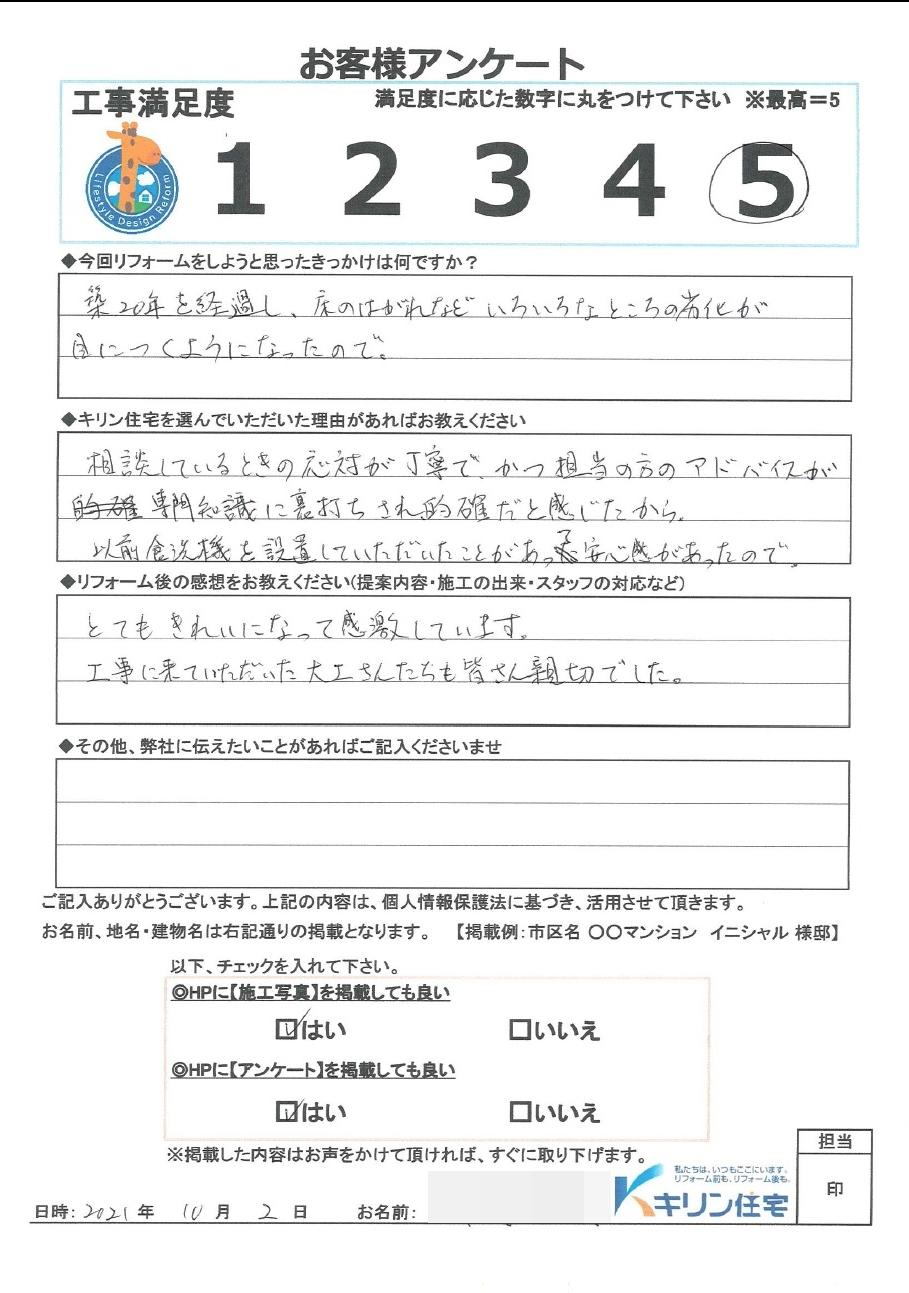 お客様アンケート
工事満足度
満足度に応じた数字に丸をつけて下さい ※最高=5
Lifestyle Design Reform
1 2 3 4 5
◆今回リフォームをしようと思ったきっかけは何ですか?
築20年を経過し、床のはがれなどいろいろなところの劣化が
目につくようになったので。
◆キリン住宅を選んでいただいた理由があればお教えください
相談しているときの応対が丁寧で、かつ担当の方のアドバイスが
的確 専門知識に裏打ちされ的確だと感じたから。
以前食洗機を設置していただいたことがあって安心感があったので。
◆リフォーム後の感想をお教えください(提案内容・施工の出来・スタッフの対応など)
とてもきれいになって感激しています。
工事に来ていただいた大工さんたちも皆さん親切でした。
◆その他、弊社に伝えたいことがあればご記入くださいませ
ご記入ありがとうございます。上記の内容は、個人情報保護法に基づき、活用させて頂きます。
お名前、地名・建物名は右記通りの掲載となります。 【掲載例:市区名 〇〇マンション イニシャル 様邸】
以下、チェックを入れて下さい。
◎HPに【施工写真】を掲載しても良い
☑はい □いいえ
◎HPに【アンケート】を掲載しても良い
☑はい □いいえ
※掲載した内容はお声をかけて頂ければ、すぐに取り下げます。
担当
印
私たちは、いつもここにいます。
リフォーム前も、リフォーム後も。
キリン住宅
日時: 2021 年 10 月 2 日 お名前: